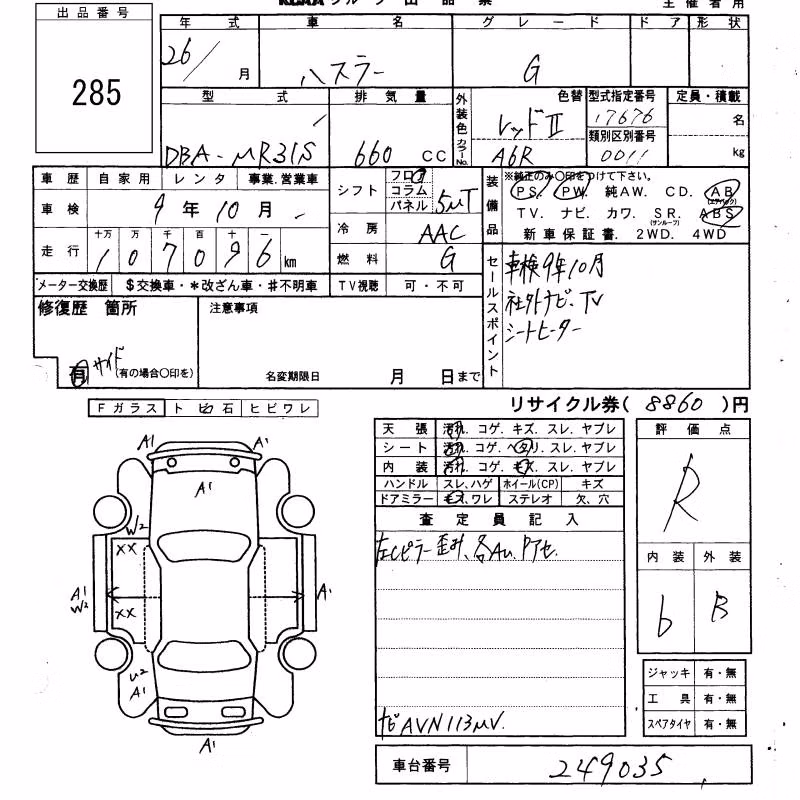 出品番号
285
年 式 車 名 グ レ ー ド ド ア 形 状
26/ 月 ハスラー G
型 式 排 気 量 外装色 色替 型式指定番号 定員・積載
DBA-MR31S 660 CC レッドII 17676 名
カラーNo. A6R 類別区別番号 0011 kg
車 歴 自 家 用 レ ン タ 事業.営業車
車 検 9 年 10 月
走 行 十万 万 千 百 十 一
1 0 7 0 9 6 km
メーター交換歴 $交換車・*改ざん車・#不明車
シフト フロア コラム パネル 5MT
冷 房 AAC
燃 料 G
TV視聴 可・不可
装備品 ※純正のみ〇印をつけて下さい。
PS. PW. 純AW. CD. AB (エアバック)
TV. ナビ. カワ. SR. (サンルーフ) ABS
新 車 保 証 書. 2WD. 4WD
セールスポイント
車検9年10月
社外ナビ・TV
シートヒーター
修復歴 箇所 注意事項
有 サイド (有の場合〇印を)
名変期限日 月 日まで
リサイクル券( 8860 )円
Fガラス ト ビ 石 ヒビワレ
A1 A1
A1
W2
XX
A1 W2 A1
XX
U2 A1
A1
天 張 汚れ. コゲ. キズ. スレ. ヤブレ
シ ー ト 汚れ. コゲ. ヘタリ. スレ. ヤブレ
内 装 汚れ. コゲ. キズ. スレ. ヤブレ
ハンドル スレ、ハゲ ホイール(CP) キズ
ドアミラー キズ、ワレ ステレオ 欠、穴
査 定 員 記 入
左Cピラー歪み、各AU.Pアセ.
ナビAVN113MV.
評 価 点
R
内 装 外 装
b B
ジャッキ 有・無
工 具 有・無
スペアタイヤ 有・無
車台番号 249035